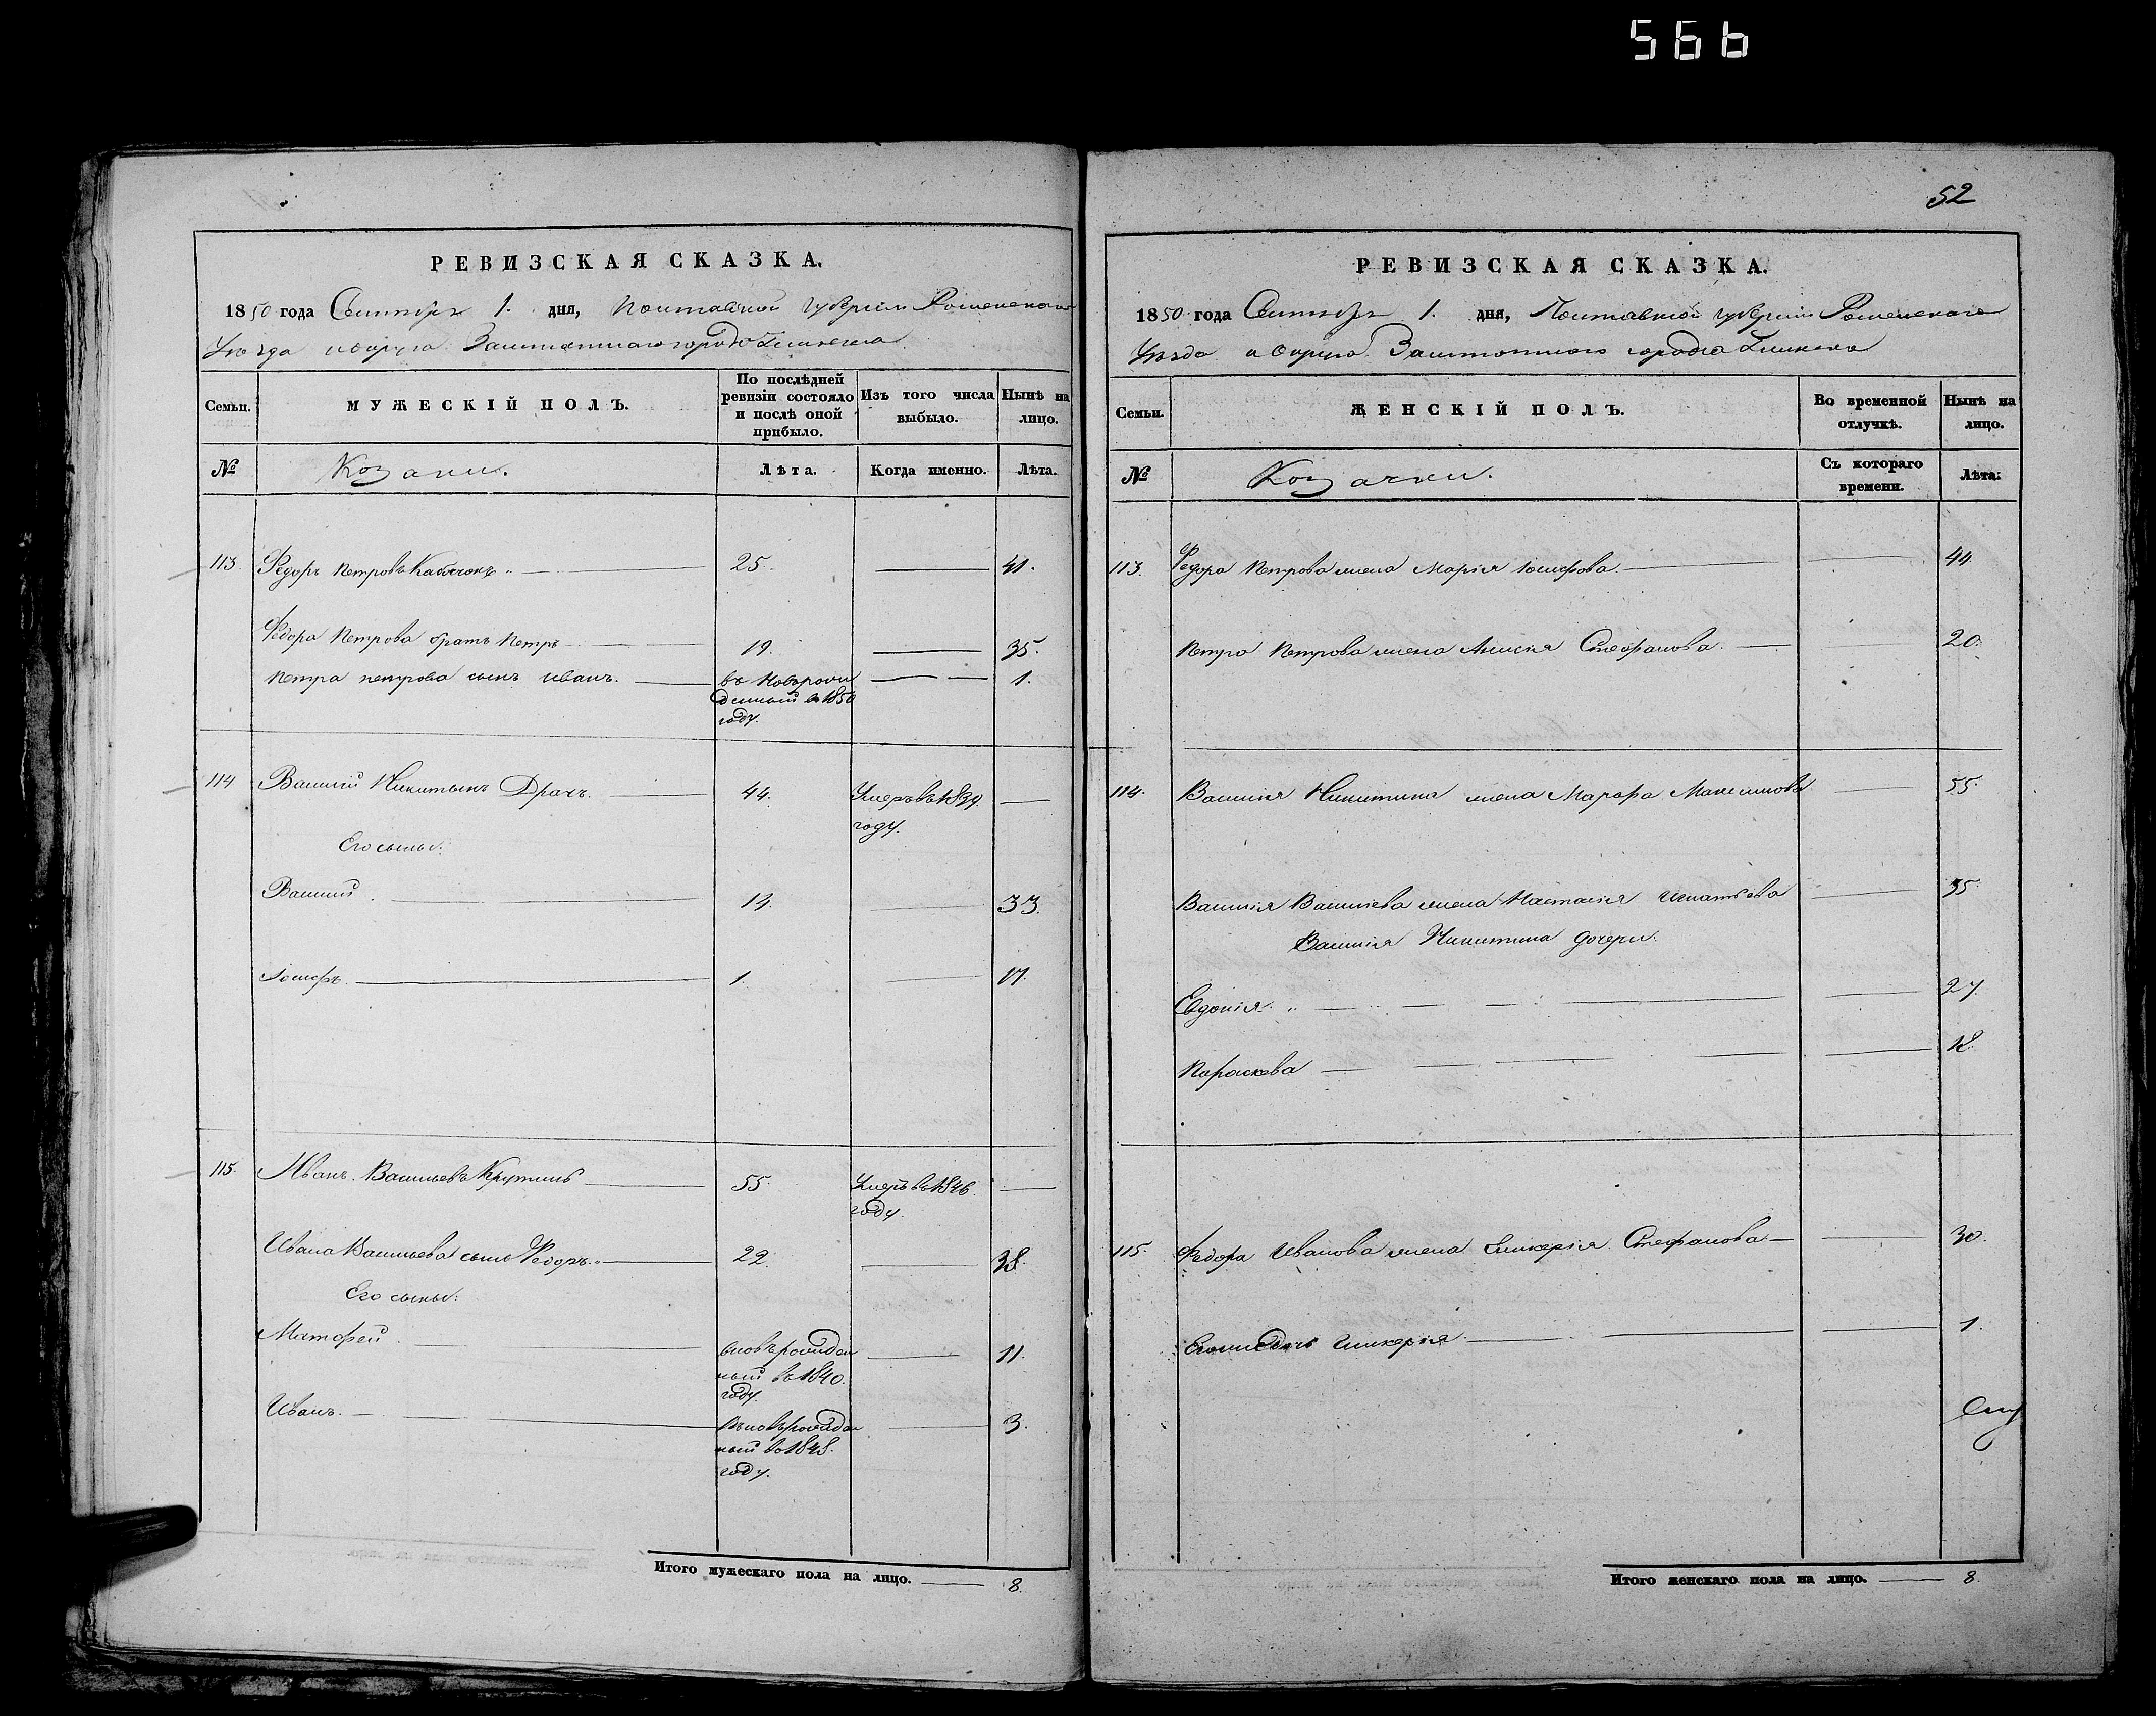 566
РЕВИЗСКАЯ СКАЗКА.
1850 года Сентября 1. дня, Полтавской губернии Роменскаго
Уезда и округа Заштатнаго города Глинска
Семьи.
МУЖЕСКІЙ ПОЛЪ.
По послѣдней ревизіи состояло и послѣ оной прибыло.
Изъ того числа выбыло.
Нынѣ на лицо.
№
Козаки.
Лѣта.
Когда именно.
Лѣта.
113. Федоръ Петровъ 25. 41.
Федора Петрова братъ Петръ 19. 35.
Петра петрова сынъ иванъ. 1.
въ 1850
году.
114 Василій Никитинъ Драчь. 44. Умеръ въ 1839
году.
Его сыны:
Василий 33.
Іосифъ 1. 17.
115. Иванъ Васильевъ 55. Умеръ въ 1846
году.
Ивана Васильева сынъ Федоръ 22. 38.
Его сыны:
Матфей 11.
вновьрожден
ный въ 1840.
году.
Иванъ. 3.
вновьрожден
ный въ 1848.
году.
Итого мужескаго пола на лицо. 8.
52
РЕВИЗСКАЯ СКАЗКА.
1850 года Сентября 1. дня, Полтавской губернии Роменскаго
Уезда и Округа Заштатнаго города Глинска
Семьи.
ЖЕНСКІЙ ПОЛЪ.
Во временной отлучкѣ.
Нынѣ на лицо.
№
Козачки.
Съ котораго времени.
Лѣта:
113. Федора Петрова жена Марія Іосифова. 44
Петра Петрова жена Стефанова 20.
114. Василія Никитина жена Марфа Максимова 55.
Василія Васильева жена Настасія Игнатьева 35
Василія Никитина дочери:
Евдокія 27.
Параскева 18
115. Федора Иванова жена Гликерія Стефанова 30.
Гликерія 1
Итого женскаго пола на лицо. 8.